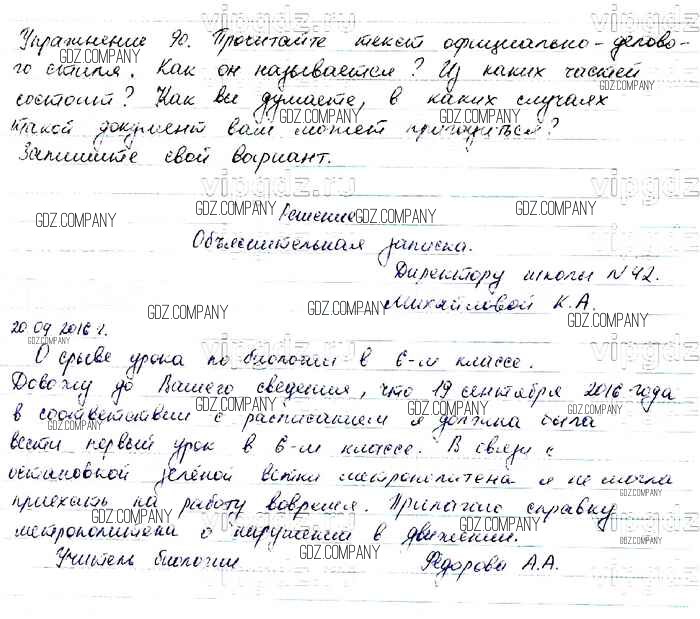 Упражнение 90. Прочитайте текст официально-делово-
го стиля. Как он называется? Из каких частей
состоит? Как вы думаете, в каких случаях
такой документ вам может пригодиться?
Запишите свой вариант.
Решение
Объяснительная записка.
Директору школы №42.
Михайловой К.А.
20 09 2016 г.
О срыве урока по биологии в 6-м классе.
Довожу до Вашего сведения, что 19 сентября 2016 года
в соответствии с расписанием я должна была
вести первый урок в 6-м классе. В связи с
остановкой зелёной ветки метрополитена я не могла
приехать на работу вовремя. Прилагаю справку
метрополитена о нарушении в движении.
Учитель биологии Федорова А.А.